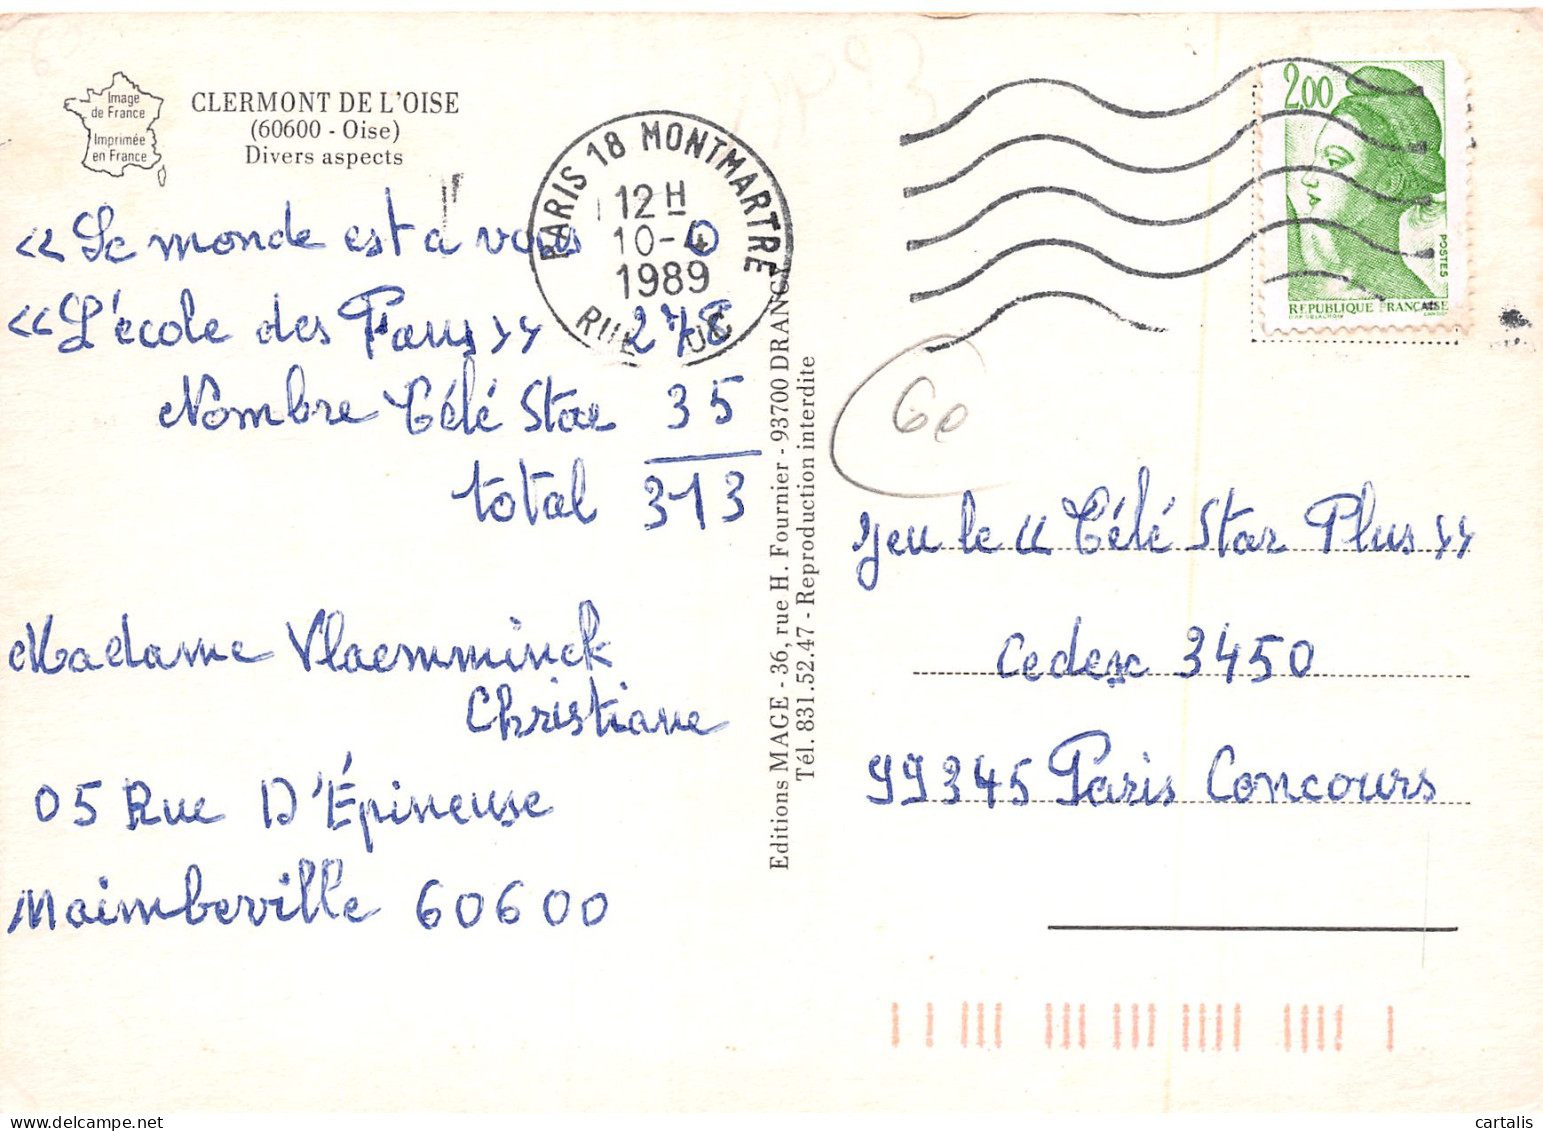 Image
de France
Imprimée
en France
CLERMONT DE L'OISE
(60600 - Oise)
Divers aspects
PARIS 18 MONTMARTRE
12 H
10-4
1989
RUE
2,00
POSTES
REPUBLIQUE FRANCAISE
« Le monde est à vous 0
« L'école des Fans » 278
Nombre Télé Star 35
total 313
Madame Vlaemminck
Christiane
05 Rue D'Épineuse
Maimbeville 60600
Editions MAGE - 36, rue H. Fournier - 93700 DRANCY
Tél. 831.52.47 - Reproduction interdite
60
Jeu le « Télé Star Plus »
Cedex 3450
99345 Paris Concours
cartalis